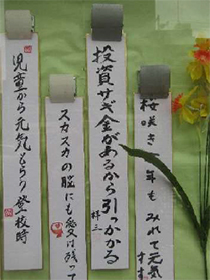 桜咲き 年も みれて 元気
投資サギ金があるから引っかかる
スカスカの脳にも は残って
児童から元気もらう登校時